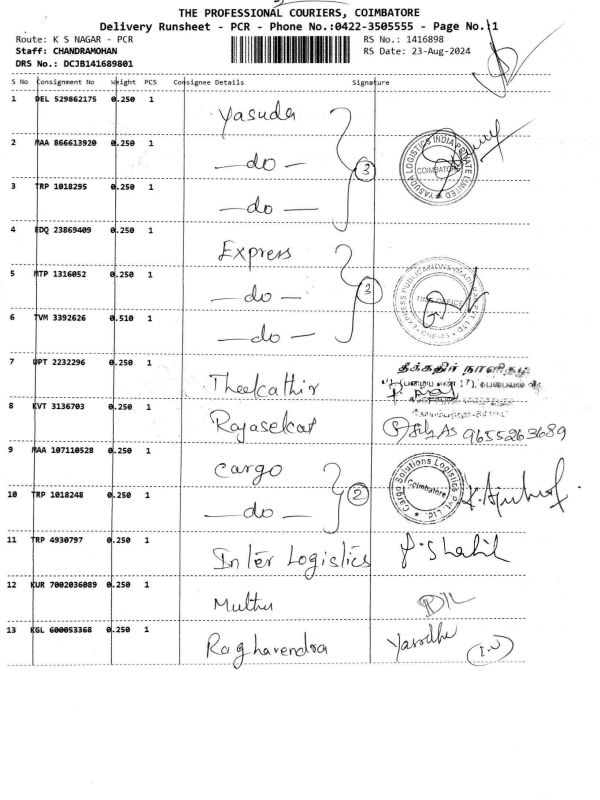 THE PROFESSIONAL COURIERS, COIMBATORE
Delivery Runsheet - PCR - Phone No.:0422-3505555 - Page No.:1
Route: K S NAGAR - PCR
RS No.: 1416898
Staff: CHANDRAMOHAN
RS Date: 23-Aug-2024
DRS No.: DCJB141689801
S No Consignment No Weight PCS Consignee Details Signature
1 DEL 529862175 0.250 1 Yasuda
2 MAA 866613920 0.250 1 —do—
3
YASUDA LOGISTICS INDIA PRIVATE LIMITED
COIMBATORE
3 TRP 1018295 0.250 1 —do—
4 EDQ 23869409 0.250 1 Express
5 MTP 1316052 0.250 1 —do—
3
TIME OFFICE
6 TVM 3392626 0.510 1 —do—
7 UPT 2232296 0.250 1 Theekathir
தீக்கதிர் நாளிதழ்
8 KVT 3136703 0.250 1 Rajasekar
9655263689
9 MAA 107110528 0.250 1 Cargo
2
Cargo Solutions Logistics Pvt. Ltd.
Coimbatore
10 TRP 1018248 0.250 1 —do—
11 TRP 4930797 0.250 1 Inter Logistics
12 KUR 7002036089 0.250 1 Muthu
13 KGL 600053368 0.250 1 Raghavendra